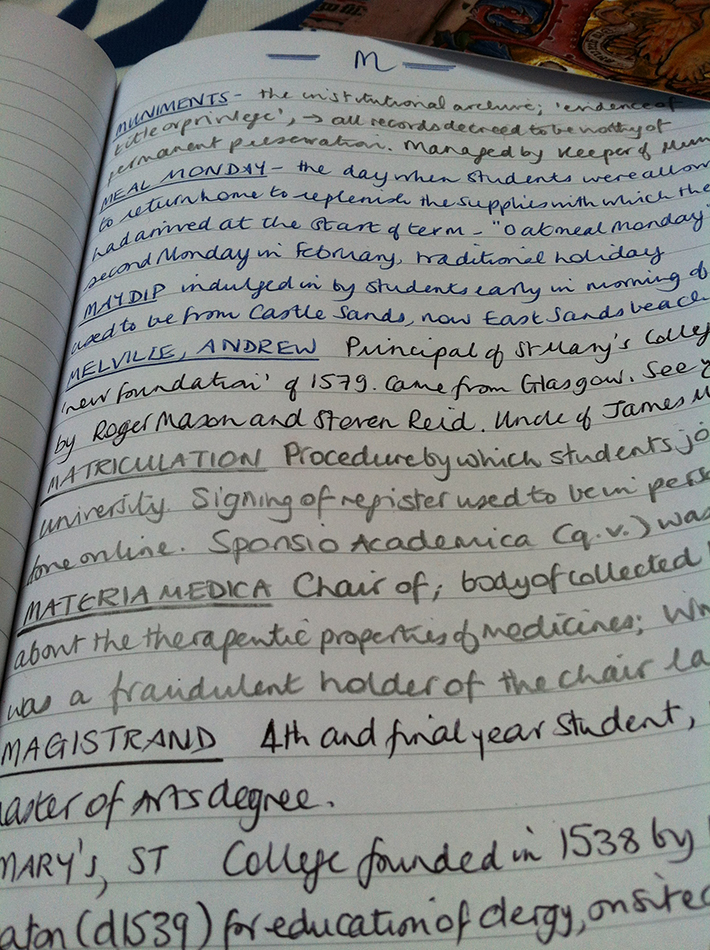 M
MUNIMENTS - the institutional archive; 'evidence of
title or privilege', → all records decreed to be worthy of
permanent preservation. Managed by Keeper of Mun
MEAL MONDAY - the day when students were allow
to return home to replenish the supplies with which the
had arrived at the start of term - "Oatmeal Monday"
second Monday in February, traditional holiday
MAY DIP indulged in by students early in morning of
used to be from Castle Sands, now East Sands beach
MELVILLE, ANDREW Principal of St Mary's Colleg
'new foundation' of 1579. Came from Glasgow. See
by Roger Mason and Steven Reid. Uncle of James M
MATRICULATION Procedure by which students jo
university. Signing of register used to be in pers
done online. Sponsio Academica (q.v.) was
MATERIA MEDICA Chair of; body of collected
about the therapeutic properties of medicines;
was a fraudulent holder of the chair la
MAGISTRAND 4th and final year student,
aster of Arts degree.
MARY'S, ST College founded in 1538 by
aton (d1539) for education of clergy, on site